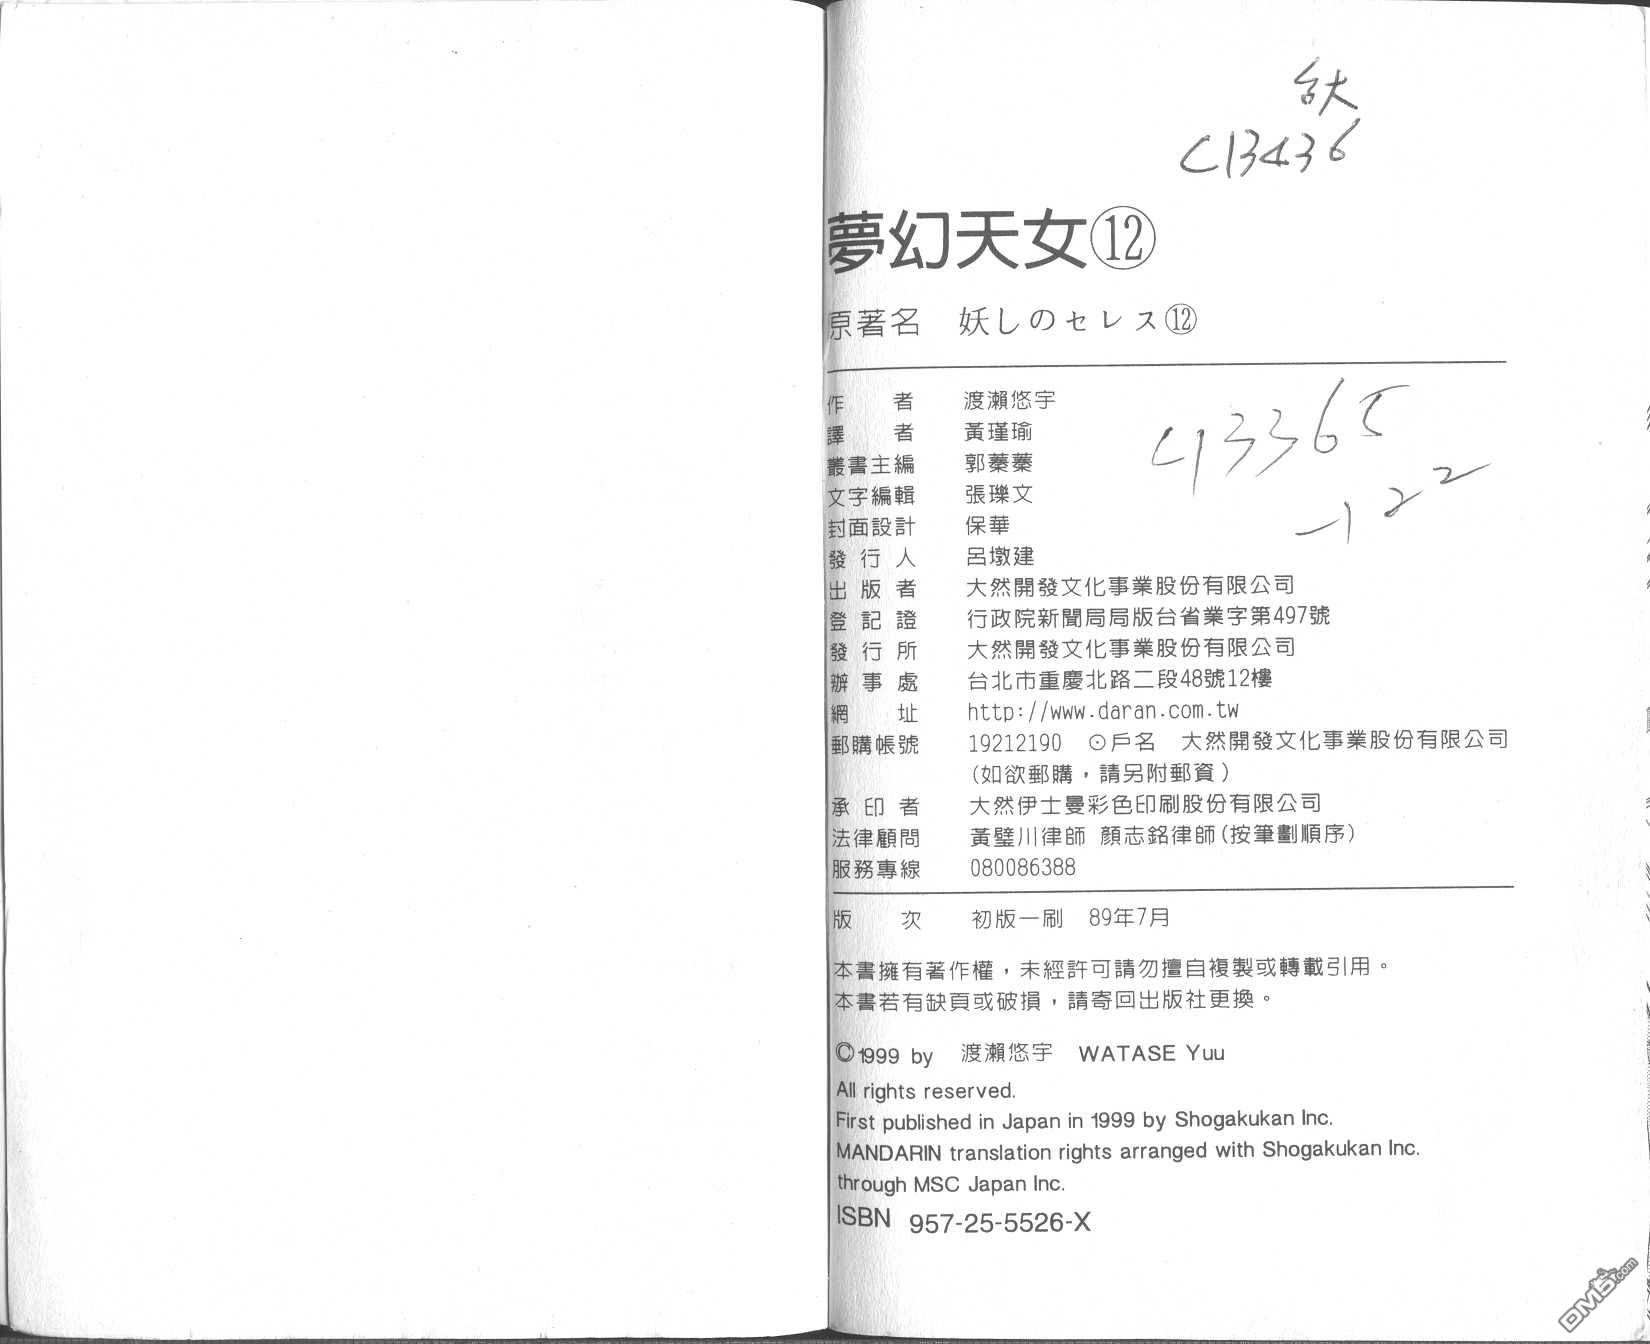 台大
C13436
夢幻天女⑫
原著名 妖しのセレス⑫
作者 渡瀨悠宇
譯者 黃瑾瑜
叢書主編 郭蓁蓁
文字編輯 張瓅文
封面設計 保華
發行人 呂墩建
出版者 大然開發文化事業股份有限公司
登記證 行政院新聞局局版台省業字第497號
發行所 大然開發文化事業股份有限公司
辦事處 台北市重慶北路二段48號12樓
網址 http://www.daran.com.tw
郵購帳號 19212190 ⊙戶名 大然開發文化事業股份有限公司
(如欲郵購，請另附郵資)
承印者 大然伊士曼彩色印刷股份有限公司
法律顧問 黃璧川律師 顏志銘律師(按筆劃順序)
服務專線 080086388
C13365
-122
版次 初版一刷 89年7月
本書擁有著作權，未經許可請勿擅自複製或轉載引用。
本書若有缺頁或破損，請寄回出版社更換。
©1999 by 渡瀨悠宇 WATASE Yuu
All rights reserved.
First published in Japan in 1999 by Shogakukan Inc.
MANDARIN translation rights arranged with Shogakukan Inc.
through MSC Japan Inc.
ISBN 957-25-5526-X
DM5.com